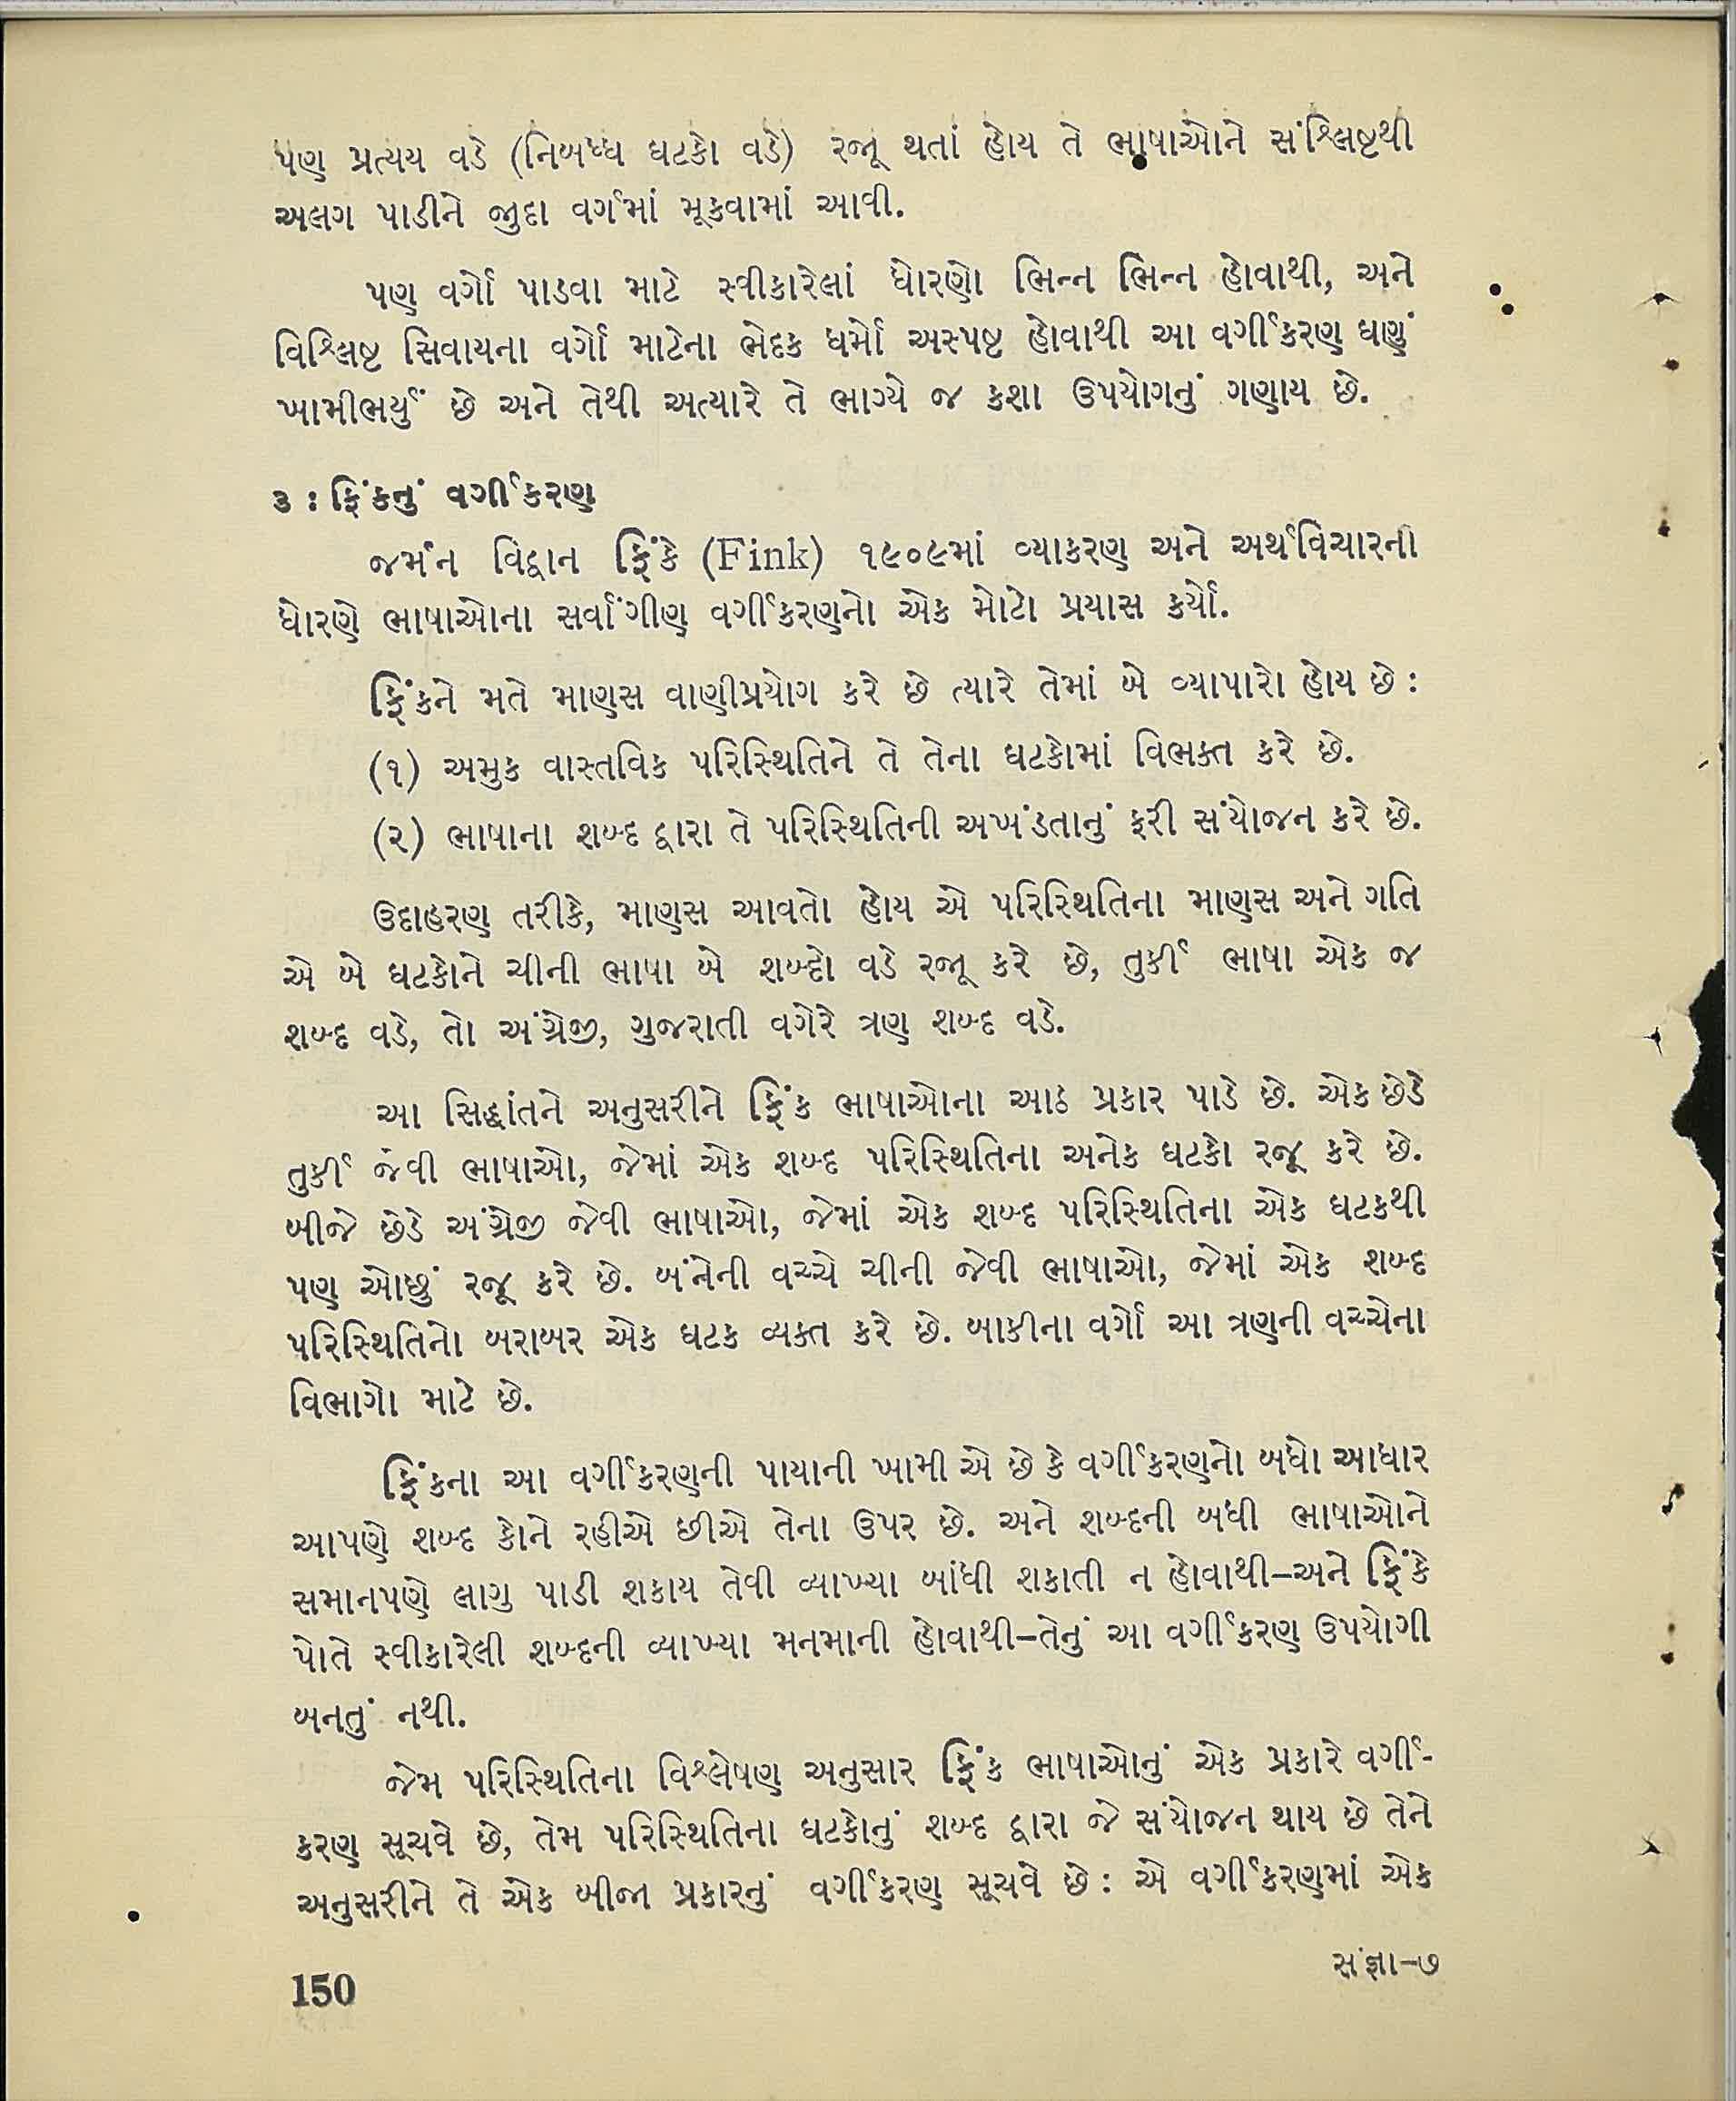 પણ પ્રત્યય વડે (નિબધ્ધ ઘટકો વડે) રજૂ થતાં હોય તે ભાષાઓને સંશ્લિષ્ટથી
અલગ પાડીને જુદા વર્ગમાં મૂકવામાં આવી.
પણ વર્ગો પાડવા માટે સ્વીકારેલાં ધોરણો ભિન્ન ભિન્ન હોવાથી, અને
વિશ્લિષ્ટ સિવાયના વર્ગો માટેના ભેદક ધર્મો અસ્પષ્ટ હોવાથી આ વર્ગીકરણ ઘણું
ખામીભર્યું છે અને તેથી અત્યારે તે ભાગ્યે જ કશા ઉપયોગનું ગણાય છે.
૩ : ફિંકનું વર્ગીકરણ
જર્મન વિદ્વાન ફિંકે (Fink) ૧૯૦૯માં વ્યાકરણ અને અર્થવિચારની
ધોરણે ભાષાઓના સર્વાંગીણ વર્ગીકરણનો એક મોટો પ્રયાસ કર્યો.
ફિંકને મતે માણસ વાણીપ્રયોગ કરે છે ત્યારે તેમાં બે વ્યાપારો હોય છે :
(૧) અમુક વાસ્તવિક પરિસ્થિતિને તે તેના ઘટકોમાં વિભક્ત કરે છે.
(૨) ભાષાના શબ્દ દ્વારા તે પરિસ્થિતિની અખંડતાનું ફરી સંયોજન કરે છે.
ઉદાહરણ તરીકે, માણસ આવતો હોય એ પરિસ્થિતિના માણસ અને ગતિ
એ બે ઘટકોને ચીની ભાષા બે શબ્દો વડે રજૂ કરે છે, તુર્કી ભાષા એક જ
શબ્દ વડે, તો અંગ્રેજી, ગુજરાતી વગેરે ત્રણ શબ્દ વડે.
આ સિદ્ધાંતને અનુસરીને ફિંક ભાષાઓના આઠ પ્રકાર પાડે છે. એક છેડે
તુર્કી જેવી ભાષાઓ, જેમાં એક શબ્દ પરિસ્થિતિના અનેક ઘટકો રજૂ કરે છે.
બીજે છેડે અંગ્રેજી જેવી ભાષાઓ, જેમાં એક શબ્દ પરિસ્થિતિના એક ઘટકથી
પણ ઓછું રજૂ કરે છે. બંનેની વચ્ચે ચીની જેવી ભાષાઓ, જેમાં એક શબ્દ
પરિસ્થિતિનો બરાબર એક ઘટક વ્યક્ત કરે છે. બાકીના વર્ગો આ ત્રણની વચ્ચેના
વિભાગો માટે છે.
ફિંકના આ વર્ગીકરણની પાયાની ખામી એ છે કે વર્ગીકરણનો બધો આધાર
આપણે શબ્દ કોને રહીએ છીએ તેના ઉપર છે. અને શબ્દની બધી ભાષાઓને
સમાનપણે લાગુ પાડી શકાય તેવી વ્યાખ્યા બાંધી શકાતી ન હોવાથી–અને ફિંકે
પોતે સ્વીકારેલી શબ્દની વ્યાખ્યા મનમાની હોવાથી–તેનું આ વર્ગીકરણ ઉપયોગી
બનતું નથી.
જેમ પરિસ્થિતિના વિશ્લેષણ અનુસાર ફિંક ભાષાઓનું એક પ્રકારે વર્ગી-
કરણ સૂચવે છે, તેમ પરિસ્થિતિના ઘટકોનું શબ્દ દ્વારા જે સંયોજન થાય છે તેને
અનુસરીને તે એક બીજા પ્રકારનું વર્ગીકરણ સૂચવે છે : એ વર્ગીકરણમાં એક
સંજ્ઞા–૭
150